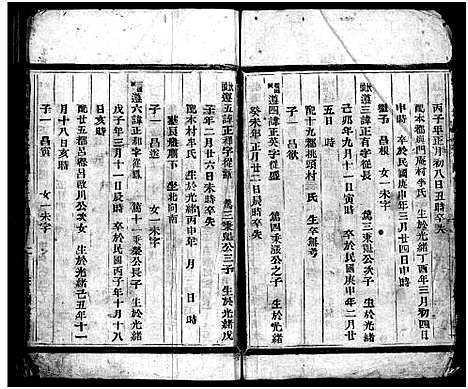 丙子年正月初八日丑時卒失
配本都與門庵村李氏 生於光緒丁酉年三月初四日
申時 卒於民國庚申年三月廿四日申時
繼子一 昌根 女一未字
遵三諱正有字從長 萬三秉公次子 生於光緒
己卯年九月十一日寅時 卒於民國庚申年二月廿
五日時
配十九都桃頭村 氏 生卒無考
子一 昌欲
遵四諱正英字從 萬四秉漲公之子 生於光緒
癸未年正月廿二日辰時卒失
遵五諱正和字從 萬三秉公三子 生於光緒戊
子年二月廿六日未時卒失
配本村李氏 生於光緒丙申年 月 日 時
墓長墩蕉下 坐北向南
子一 昌遠 女一未字
遵六諱正和字從 萬十一秉公長子 生於光緒
戊子年三月十一日辰時 卒於民國丙子年十月十八
日亥時
配廿五都呂縣呂政川公次女 生於光緒己丑年十一
月十八日亥時
子一 昌 女一未字